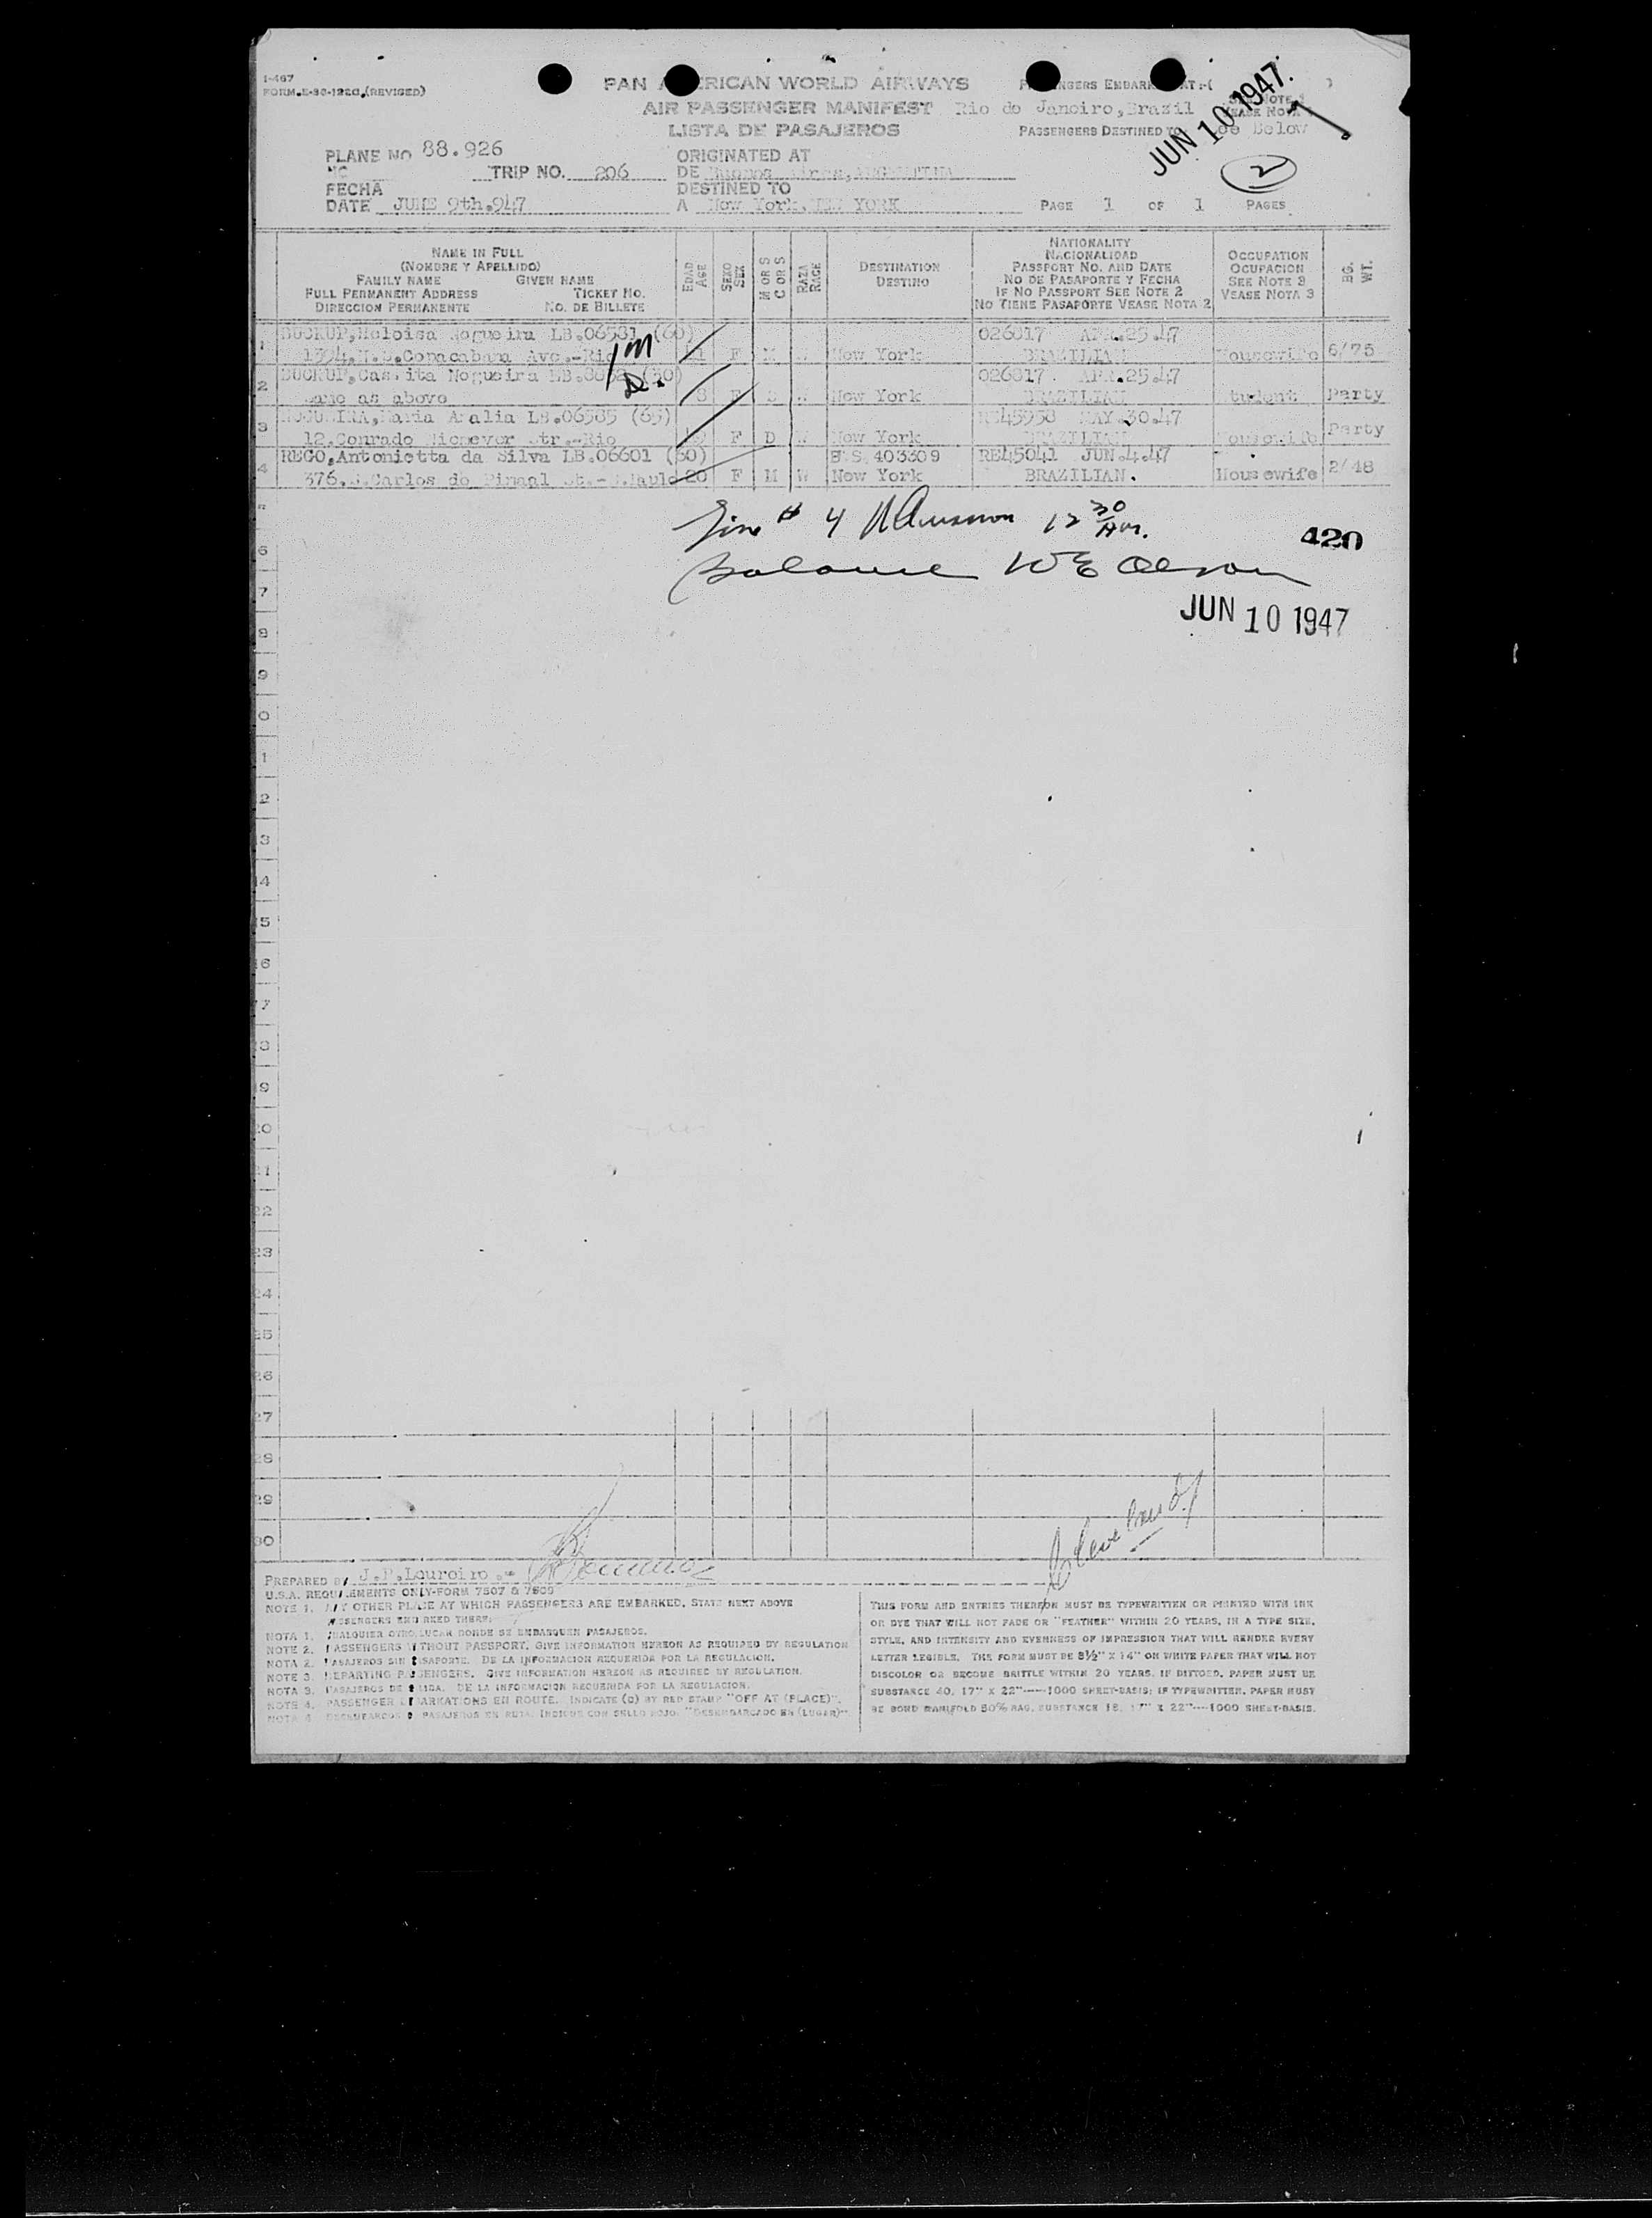 I-467
FORM.E-30-1220.(REVISED)
PAN AMERICAN WORLD AIRWAYS
AIR PASSENGER MANIFEST
LISTA DE PASAJEROS
Rio de Janeiro, Brazil
PASSENGERS DESTINED TO
See Below
JUN 10 1947
2
PLANE NO 88.926
NC
TRIP NO. 206
ORIGINATED AT
DE Buenos Aires, ARGENTINA
FECHA
DATE JUNE 9th.947
DESTINED TO
A New York, NEW YORK
PAGE 1 OF 1 PAGES
NAME IN FULL
(NOMBRE Y APELLIDO)
FAMILY NAME GIVEN NAME
FULL PERMANENT ADDRESS TICKET NO.
DIRECCION PERMANENTE NO. DE BILLETE
EDAD AGE
SEXO SEX
M OR S C OR S
RAZA RACE
DESTINATION
DESTINO
NATIONALITY
NACIONALIDAD
PASSPORT NO. AND DATE
NO DE PASAPORTE Y FECHA
IF NO PASSPORT SEE NOTE 2
NO TIENE PASAPORTE VEASE NOTA 2
OCCUPATION
OCUPACION
SEE NOTE 3
VEASE NOTA 3
BG. WT.
1 BUCKUP, Heloisa Nogueira LB.06581 (60) 026817 APR.25.47
1394, N.S. Copacabana Ave.-Rio F M W New York BRAZILIAN Housewife 6/75
2 BUCKUP, Nogueira 026817 APR.25.47
Same as above 8 F S W New York BRAZILIAN Student Party
3 NOGUEIRA, Maria Amalia LB.06585 (65) RE45958 MAY.30.47
12, Conrado Niemeyer Str.-Rio F D W New York BRAZILIAN Housewife Party
4 REGO, Antonietta da Silva LB.06601 (60) B.S. 403309 RE45041 JUN.4.47
376, Carlos do Pinhal St.- S.Paulo 20 F M W New York BRAZILIAN. Housewife 2/48
Line # 4 12 30 Am.
420
balance W E Olson
JUN 10 1947
6
7
8
9
0
1
2
3
14
15
16
17
18
19
20
21
22
23
24
25
26
27
28
29
30
PREPARED BY J.P.Loureiro.-
U.S.A. REQUIREMENTS ONLY-FORM 7507 & 7509
NOTE 1. ANY OTHER PLACE AT WHICH PASSENGERS ARE EMBARKED, STATE NEXT ABOVE
PASSENGERS EMBARKED THERE.
NOTA 1. CUALQUIER OTRO LUGAR DONDE SE EMBARQUEN PASAJEROS.
NOTE 2. PASSENGERS WITHOUT PASSPORT, GIVE INFORMATION HEREON AS REQUIRED BY REGULATION
NOTA 2. PASAJEROS SIN PASAPORTE. DE LA INFORMACION REQUERIDA POR LA REGULACION.
NOTE 3. DEPARTING PASSENGERS. GIVE INFORMATION HEREON AS REQUIRED BY REGULATION.
NOTA 3. PASAJEROS DE SALIDA. DE LA INFORMACION REQUERIDA POR LA REGULACION.
NOTE 4. PASSENGER DEBARKATIONS EN ROUTE. INDICATE (D) BY RED STAMP "OFF AT (PLACE)".
NOTA 4. DESEMBARCOS DE PASAJEROS EN RUTA. INDIQUE CON SELLO ROJO. "DESEMBARCADO EN (LUGAR)".
THIS FORM AND ENTRIES THEREON MUST BE TYPEWRITTEN OR PRINTED WITH INK
OR DYE THAT WILL NOT FADE OR "FEATHER" WITHIN 20 YEARS, IN A TYPE SIZE,
STYLE, AND INTENSITY AND EVENNESS OF IMPRESSION THAT WILL RENDER EVERY
LETTER LEGIBLE. THE FORM MUST BE 8½" X 14" ON WHITE PAPER THAT WILL NOT
DISCOLOR OR BECOME BRITTLE WITHIN 20 YEARS. IF DITTOED, PAPER MUST BE
SUBSTANCE 40, 17" X 22"----1000 SHEET-BASIS; IF TYPEWRITTEN, PAPER MUST
BE BOND MANIFOLD 50% RAG, SUBSTANCE 18, 17" X 22"----1000 SHEET-BASIS.